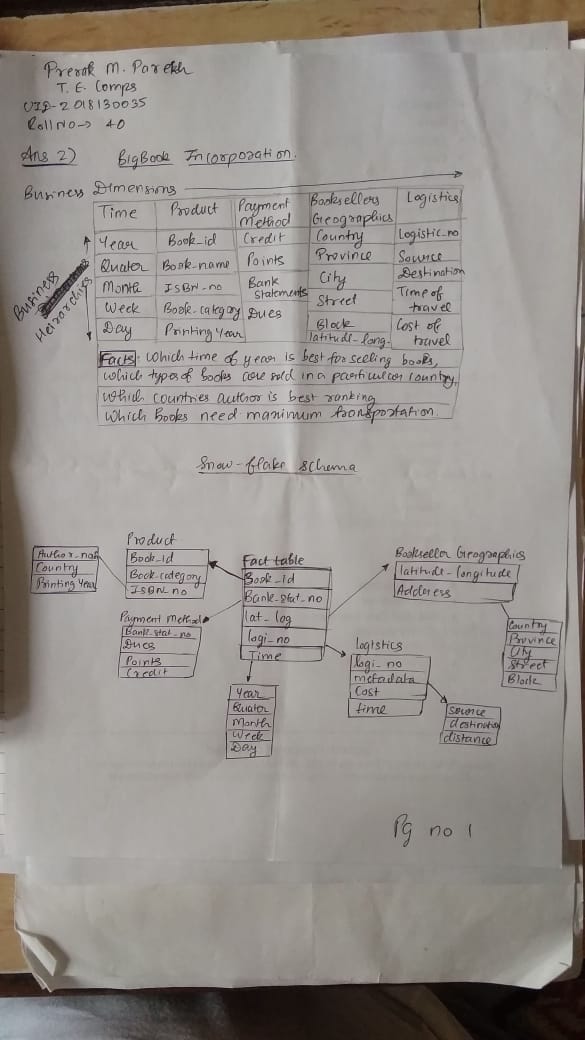 Prerak M. Parekh
T. E. Comps
UID-2018130035
Roll No → 40
Ans 2) BigBook Incorporation.
Business Dimensions
Time Product Payment Method Booksellers Geographics Logistics
Year Book_id Credit Country Logistic_no
Quater Book_name Points Province Source
Month ISBN_no Bank Statements City Destination
Week Book_category Dues Street Time of travel
Day Printing Year Block Cost of travel
latitude-long.
Business
Heirarchies
Facts: Which time of year is best for selling books,
which types of books are sold in a particular country,
which countries author is best ranking
which Books need maximum transportation.
Snow-flake schema
Author_nam
Country
Printing Year
Product
Book_id
Book_category
ISBN_no
Payment Method
Bank_stat_no
Dues
Points
Credit
Fact table
Book_Id
Bank_stat_no
lat_log
logi_no
Time
Year
Quater
Month
Week
Day
Logistics
logi_no
metadata
Cost
time
source
destination
distance
Bookseller Geographics
latitude-longitude
Adderess
Country
Province
City
Street
Block
Pg no 1